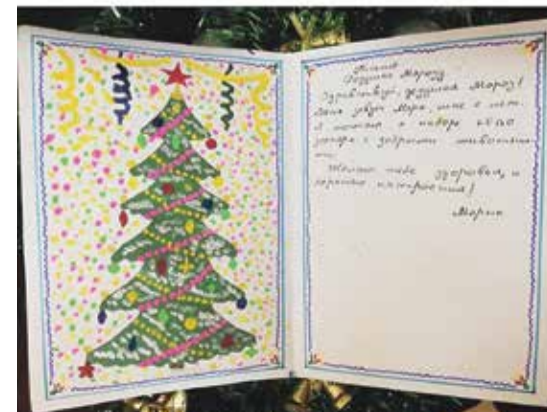 Дедушке Морозу
Здравствуй, дедушка Мороз!
Меня зовут Мария, мне
Я мечтаю о наборе LEGO
с добрыми
Желаю тебе здоровья, и
хорошего настроения!
Мария